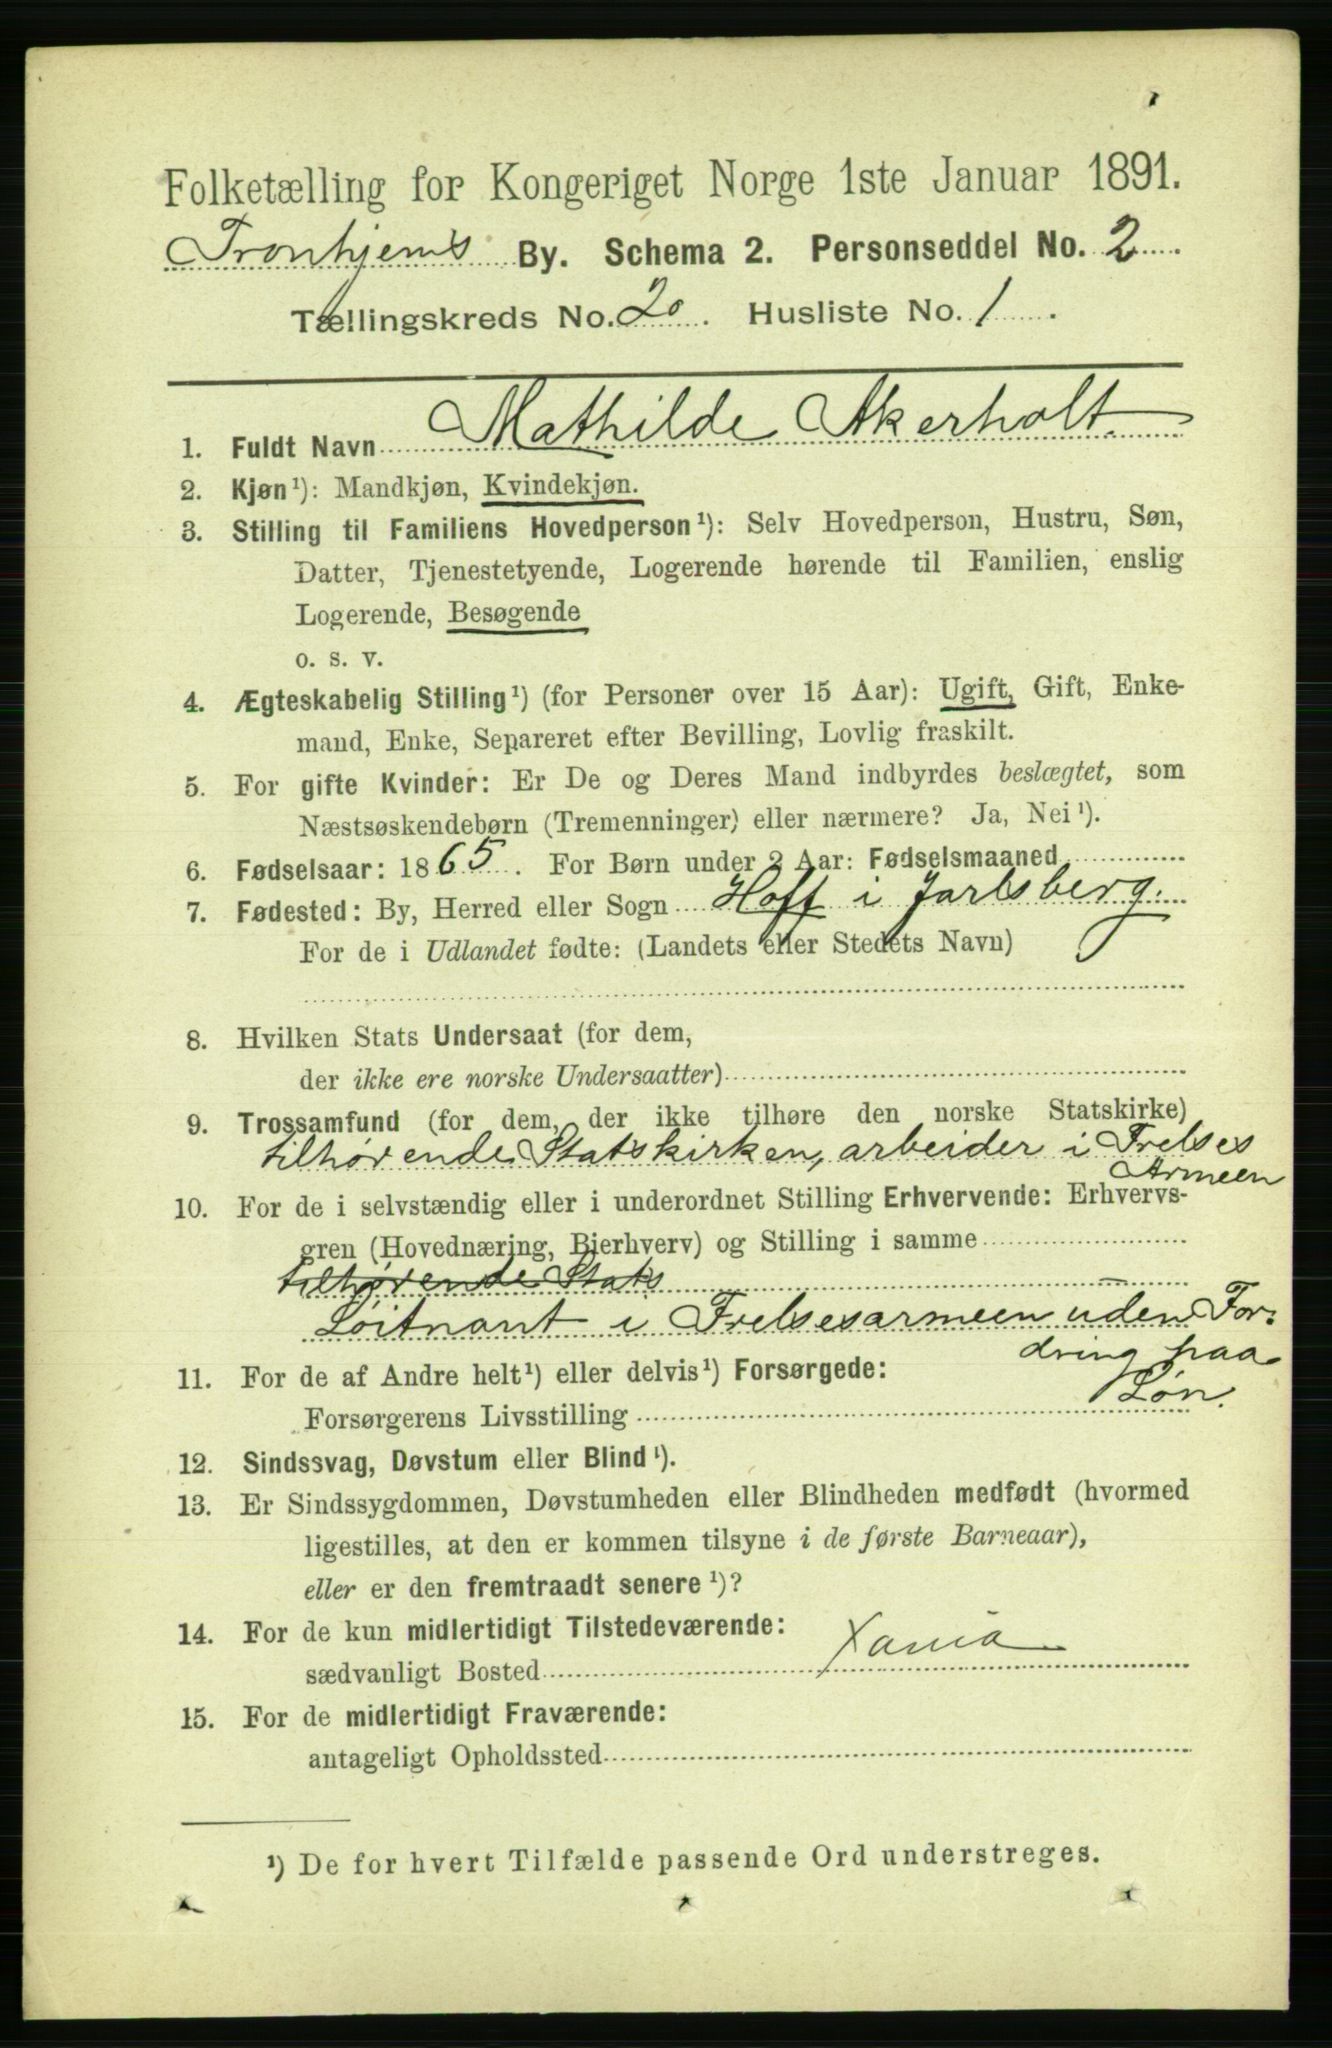 Folketælling for Kongeriget Norge 1ste Januar 1891.
Tronhjems By. Schema 2. Personseddel No. 2
Tællingskreds No. 20. Husliste No. 1
1. Fuldt Navn Mathilde Akerholt
2. Kjøn¹): Mandkjøn, Kvindekjøn.
3. Stilling til Familiens Hovedperson¹): Selv Hovedperson, Hustru, Søn,
Datter, Tjenestetyende, Logerende hørende til Familien, enslig
Logerende, Besøgende
o. s. v.
4. Ægteskabelig Stilling¹) (for Personer over 15 Aar): Ugift, Gift, Enke-
mand, Enke, Separeret efter Bevilling, Lovlig fraskilt.
5. For gifte Kvinder: Er De og Deres Mand indbyrdes beslægtet, som
Næstsøskendebørn (Tremenninger) eller nærmere? Ja, Nei¹).
6. Fødselsaar: 1865. For Børn under 2 Aar: Fødselsmaaned
7. Fødested: By, Herred eller Sogn Hoff i Jarlsberg.
For de i Udlandet fødte: (Landets eller Stedets Navn)
8. Hvilken Stats Undersaat (for dem,
der ikke ere norske Undersaatter)
9. Trossamfund (for dem, der ikke tilhøre den norske Statskirke)
tilhørende Statskirken, arbeider i Frelses
Armeen
10. For de i selvstændig eller i underordnet Stilling Erhvervende: Erhvervs-
gren (Hovednæring, Bierhverv) og Stilling i samme
tilhørende Stats
Løitnant i Frelsesarmeen uden For:
dring paa
Løn.
11. For de af Andre helt¹) eller delvis¹) Forsørgede:
Forsørgerens Livsstilling
12. Sindssvag, Døvstum eller Blind¹).
13. Er Sindssygdommen, Døvstumheden eller Blindheden medfødt (hvormed
ligestilles, at den er kommen tilsyne i de første Barneaar),
eller er den fremtraadt senere¹)?
14. For de kun midlertidigt Tilstedeværende:
sædvanligt Bosted Xania
15. For de midlertidigt Fraværende:
antageligt Opholdssted
¹) De for hvert Tilfælde passende Ord understreges.